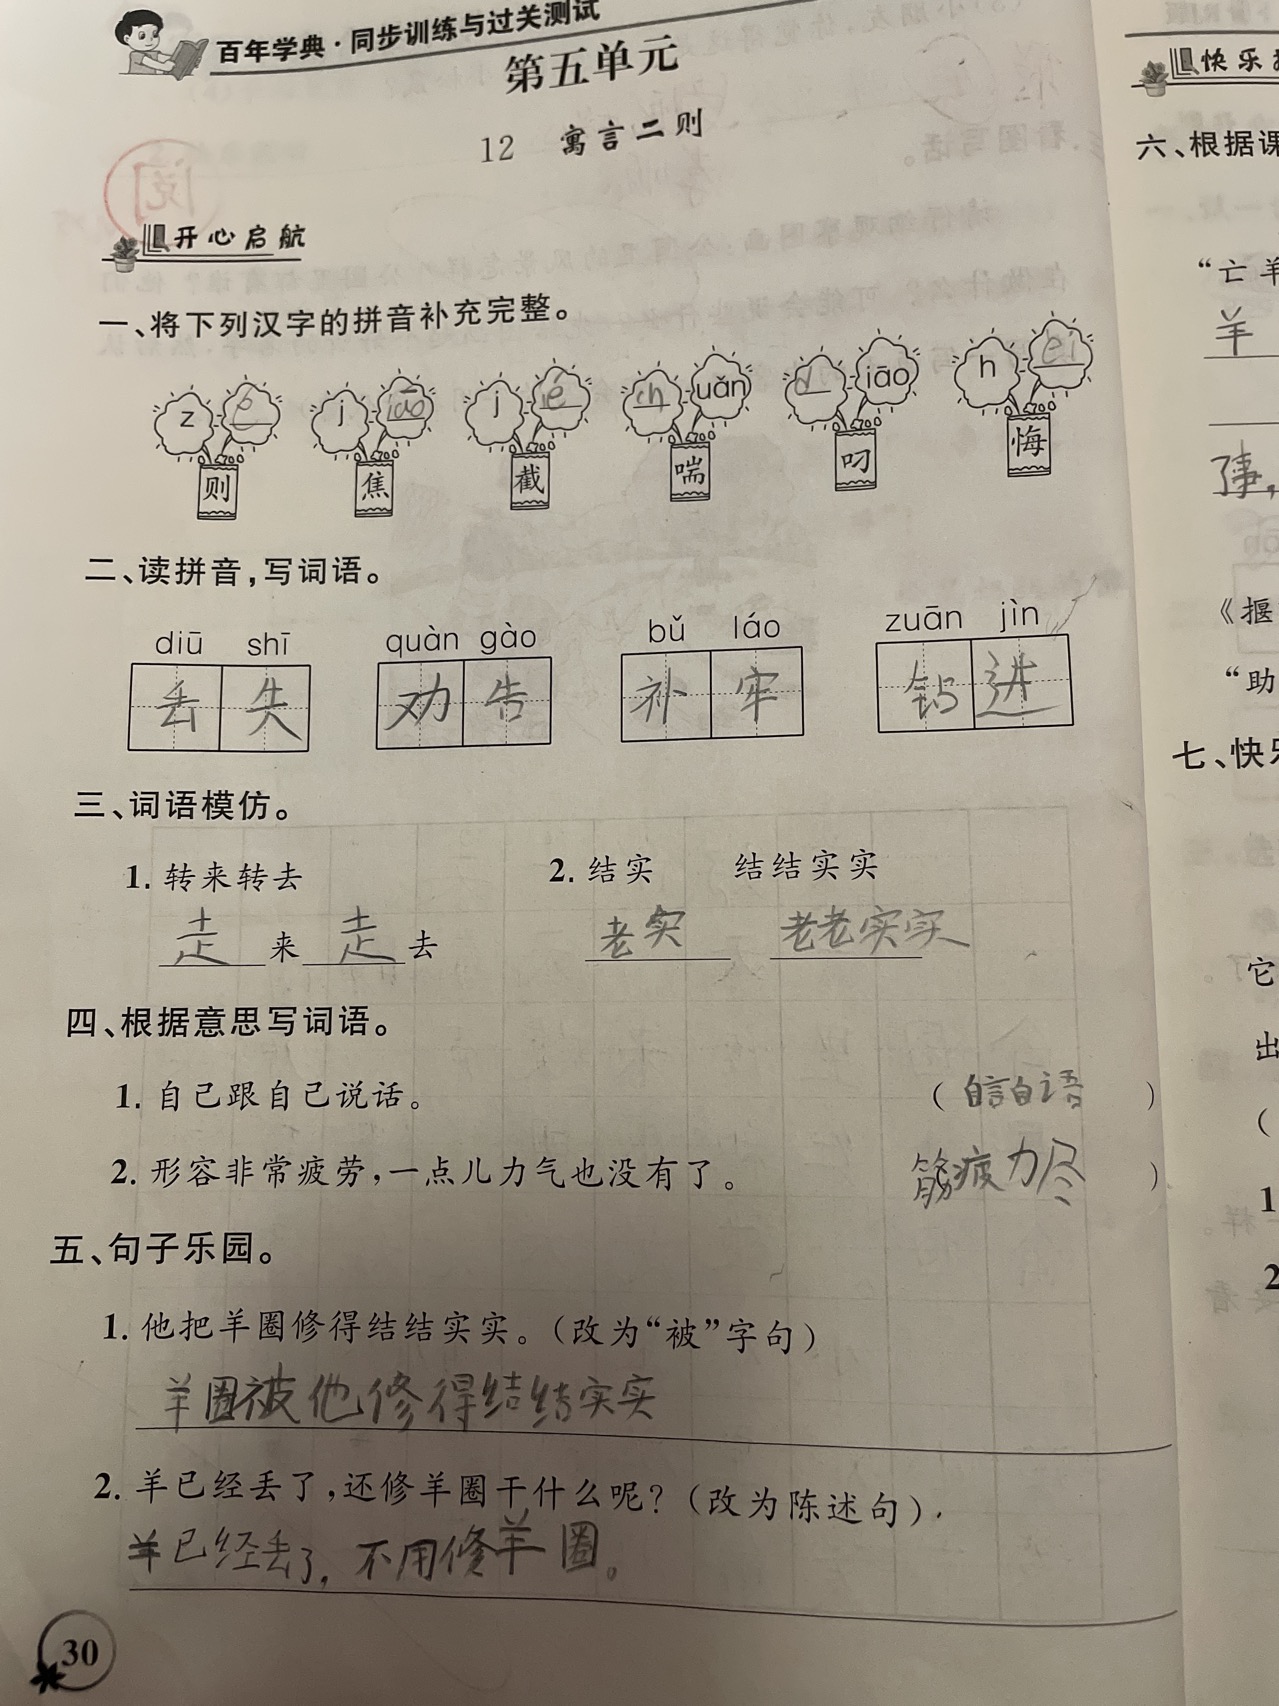 百年学典·同步训练与过关测试
第五单元
12 寓言二则
阅
开心启航
一、将下列汉字的拼音补充完整。
z é j iāo j ié ch uǎn d iāo h ěi
则 焦 截 喘 叼 悔
二、读拼音,写词语。
diū shī quàn gào bǔ láo zuān jìn
丢失 劝告 补牢 钻进
三、词语模仿。
1. 转来转去 2. 结实 结结实实
走来走去 老实 老老实实
四、根据意思写词语。
1. 自己跟自己说话。 (自言自语)
2. 形容非常疲劳,一点儿力气也没有了。 筋疲力尽)
五、句子乐园。
1. 他把羊圈修得结结实实。(改为“被”字句)
羊圈被他修得结结实实
2. 羊已经丢了,还修羊圈干什么呢?(改为陈述句).
羊已经丢了,不用修羊圈。
30
快乐
六、根据课
“亡羊
羊
事,
《揠
“助
七、快乐
它
出
(
1
2